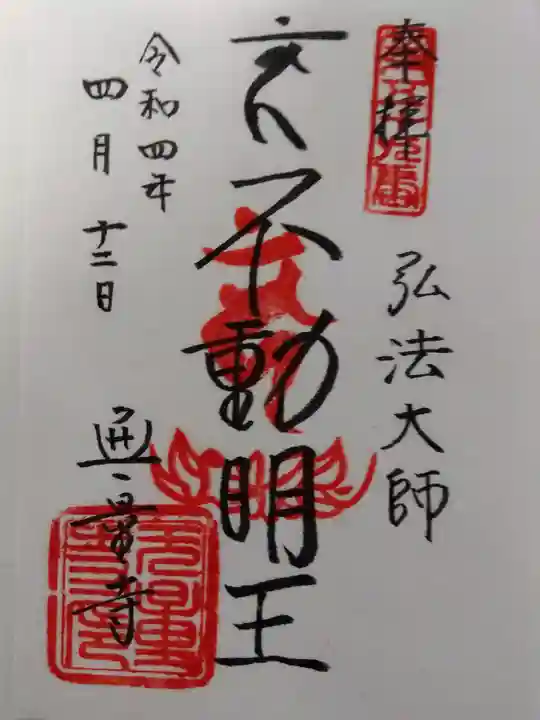 奉拝
弘法大師
不動明王
令和四年
四月十二日
通量寺